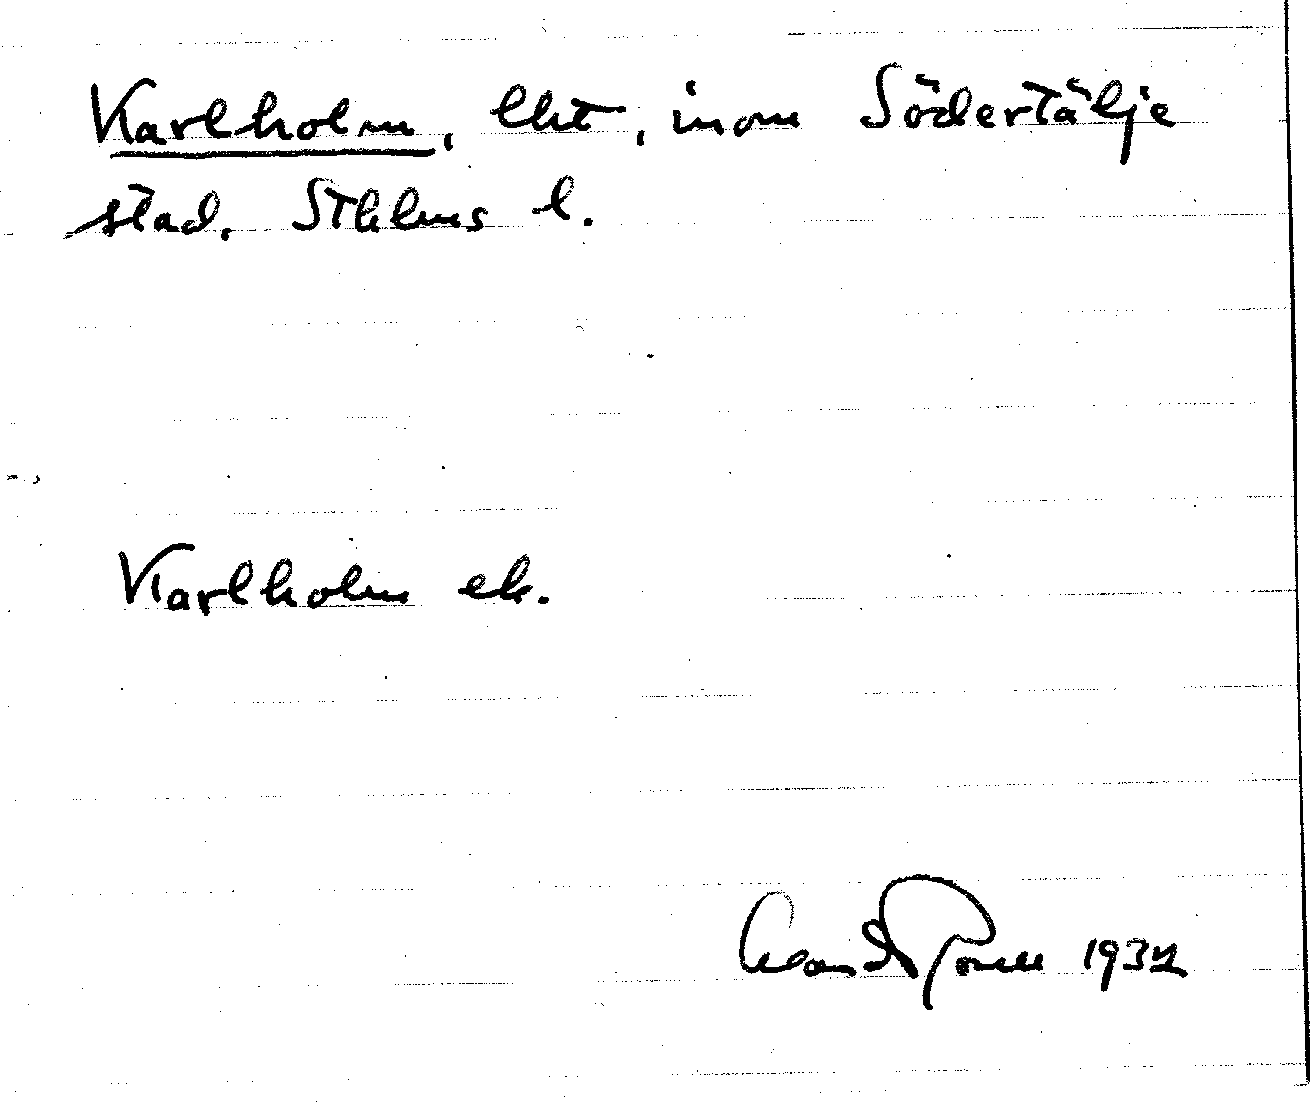 Karlholm, lht, inom Södertälje
stad. Sthlms l.
Karlholm ek.
1932